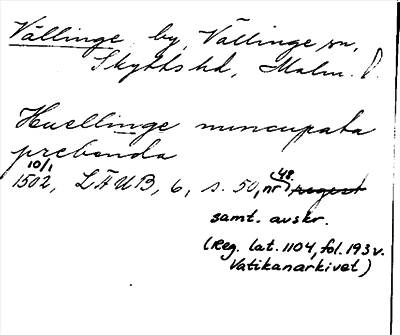 Vällinge by, Vällinge sn,
Skytts hd, Malm. l.
Huellinge nuncupata
prebenda
10/1
1502, LÄUB, 6, s. 50, nr 48 regest
samt. avskr.
(Reg. lat. 1104, fol. 193 v.
Vatikanarkivet)